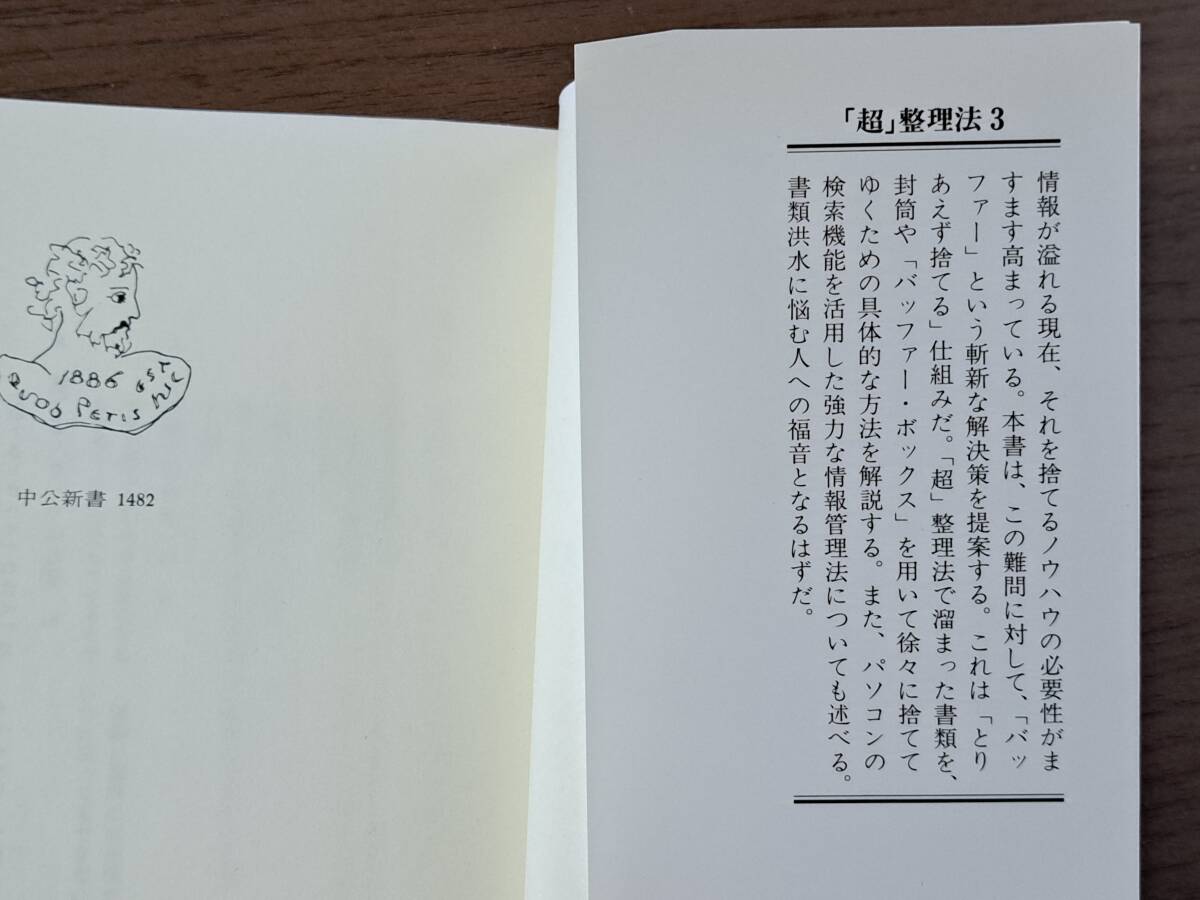 「超」整理法3
情報が溢れる現在、それを捨てるノウハウの必要性がま
すます高まっている。本書は、この難問に対して、「バッ
ファー」という斬新な解決策を提案する。これは「とり
あえず捨てる」仕組みだ。「超」整理法で溜まった書類を、
封筒や「バッファー・ボックス」を用いて徐々に捨てて
ゆくための具体的な方法を解説する。また、パソコンの
検索機能を活用した強力な情報管理法についても述べる。
書類洪水に悩む人への福音となるはずだ。
1886 EST
QUOD PETIS HIC
中公新書 1482